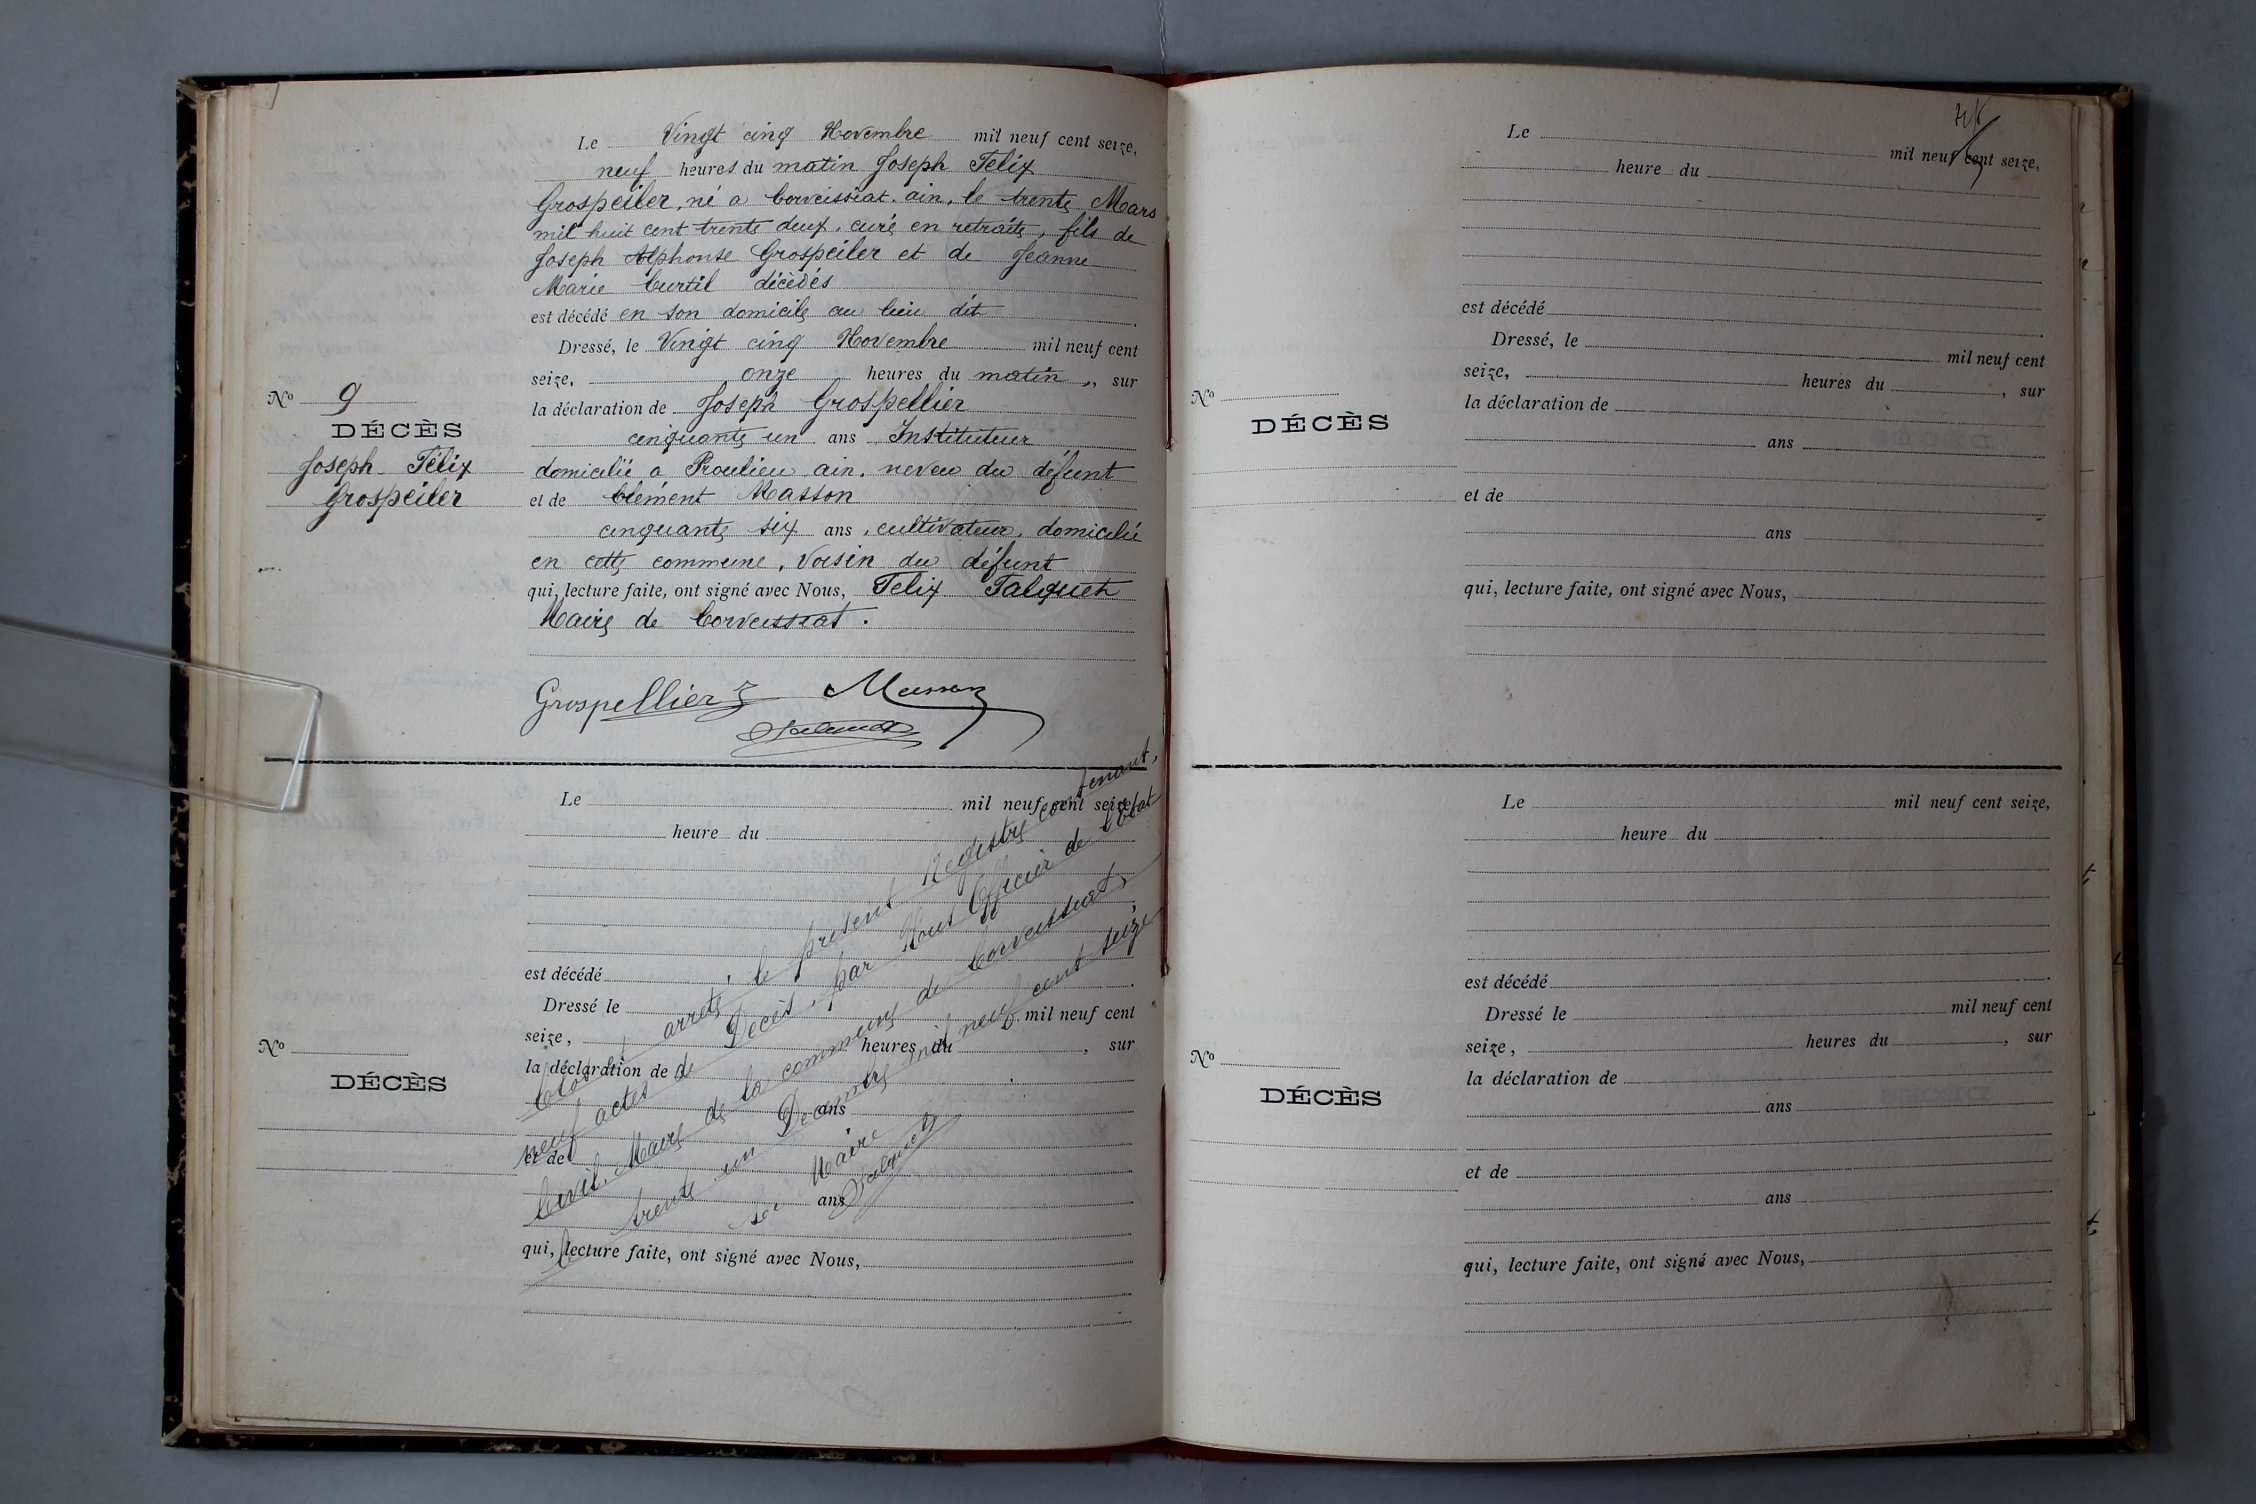 Le Vingt cinq Novembre mil neuf cent seize,
neuf heures du matin Joseph Felix
Grospeiler, né a Corveissiat. ain, le trente Mars
mil huit cent trente deux, curé en retraite, fils de
Joseph Alphonse Grospeiler et de Jeanne
Marie Curtil décèdés
est décédé en son domicile au lieu dit
Dressé, le Vingt cinq Novembre mil neuf cent
seize, onze heures du matin, sur
la déclaration de Joseph Grospellier
cinquante un ans Instituteur
domicilié a Proulieu ain, neveu du défunt
et de Clément Masson
cinquante six ans, cultivateur, domicilié
en cette commune, Voisin du défunt
qui, lecture faite, ont signé avec Nous, Felix Falquet
Maire de Corveissiat.
Grospellier Masson
Falquet
Nº 9
DÉCÈS
Joseph Félix
Grospeiler
Le mil neuf cent seize,
heure du
est décédé
Dressé le mil neuf cent
seize, heures du , sur
la déclaration de
ans
et de
ans
qui, lecture faite, ont signé avec Nous,
Nº
DÉCÈS
Clos et arrêté le présent Registre contenant,
neuf actes de Décès, par Nous Officier de l'Etat
Civil, Maire de la commune de Corveissiat,
le trente un Décembre mil neuf cent seize
Le Maire
Falquet
Le mil neuf cent seize,
heure du
est décédé
Dressé, le mil neuf cent
seize, heures du , sur
la déclaration de
ans
et de
ans
qui, lecture faite, ont signé avec Nous,
Nº
DÉCÈS
Le mil neuf cent seize,
heure du
est décédé
Dressé le mil neuf cent
seize, heures du , sur
la déclaration de
ans
et de
ans
qui, lecture faite, ont signé avec Nous,
Nº
DÉCÈS